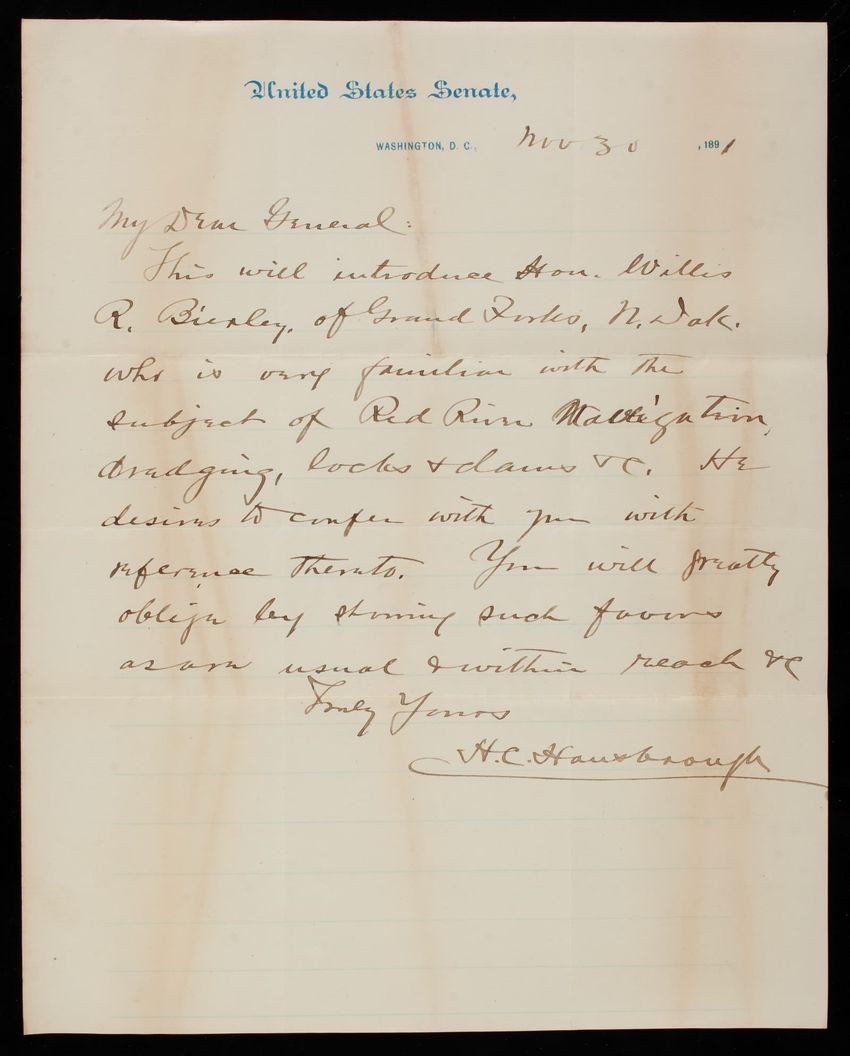 United States Senate,
WASHINGTON, D. C., Nov 30, 1891
My Dear General:
This will introduce Hon. Willis
R. Bierley, of Grand Forks, N. Dak.
who is very familiar with the
subject of Red River Navigation,
dredging, locks & dams &c. He
desires to confer with you with
reference thereto. You will greatly
oblige by showing such favors
as are usual & within reach &c
Truly Yours
H. C. Hansbrough